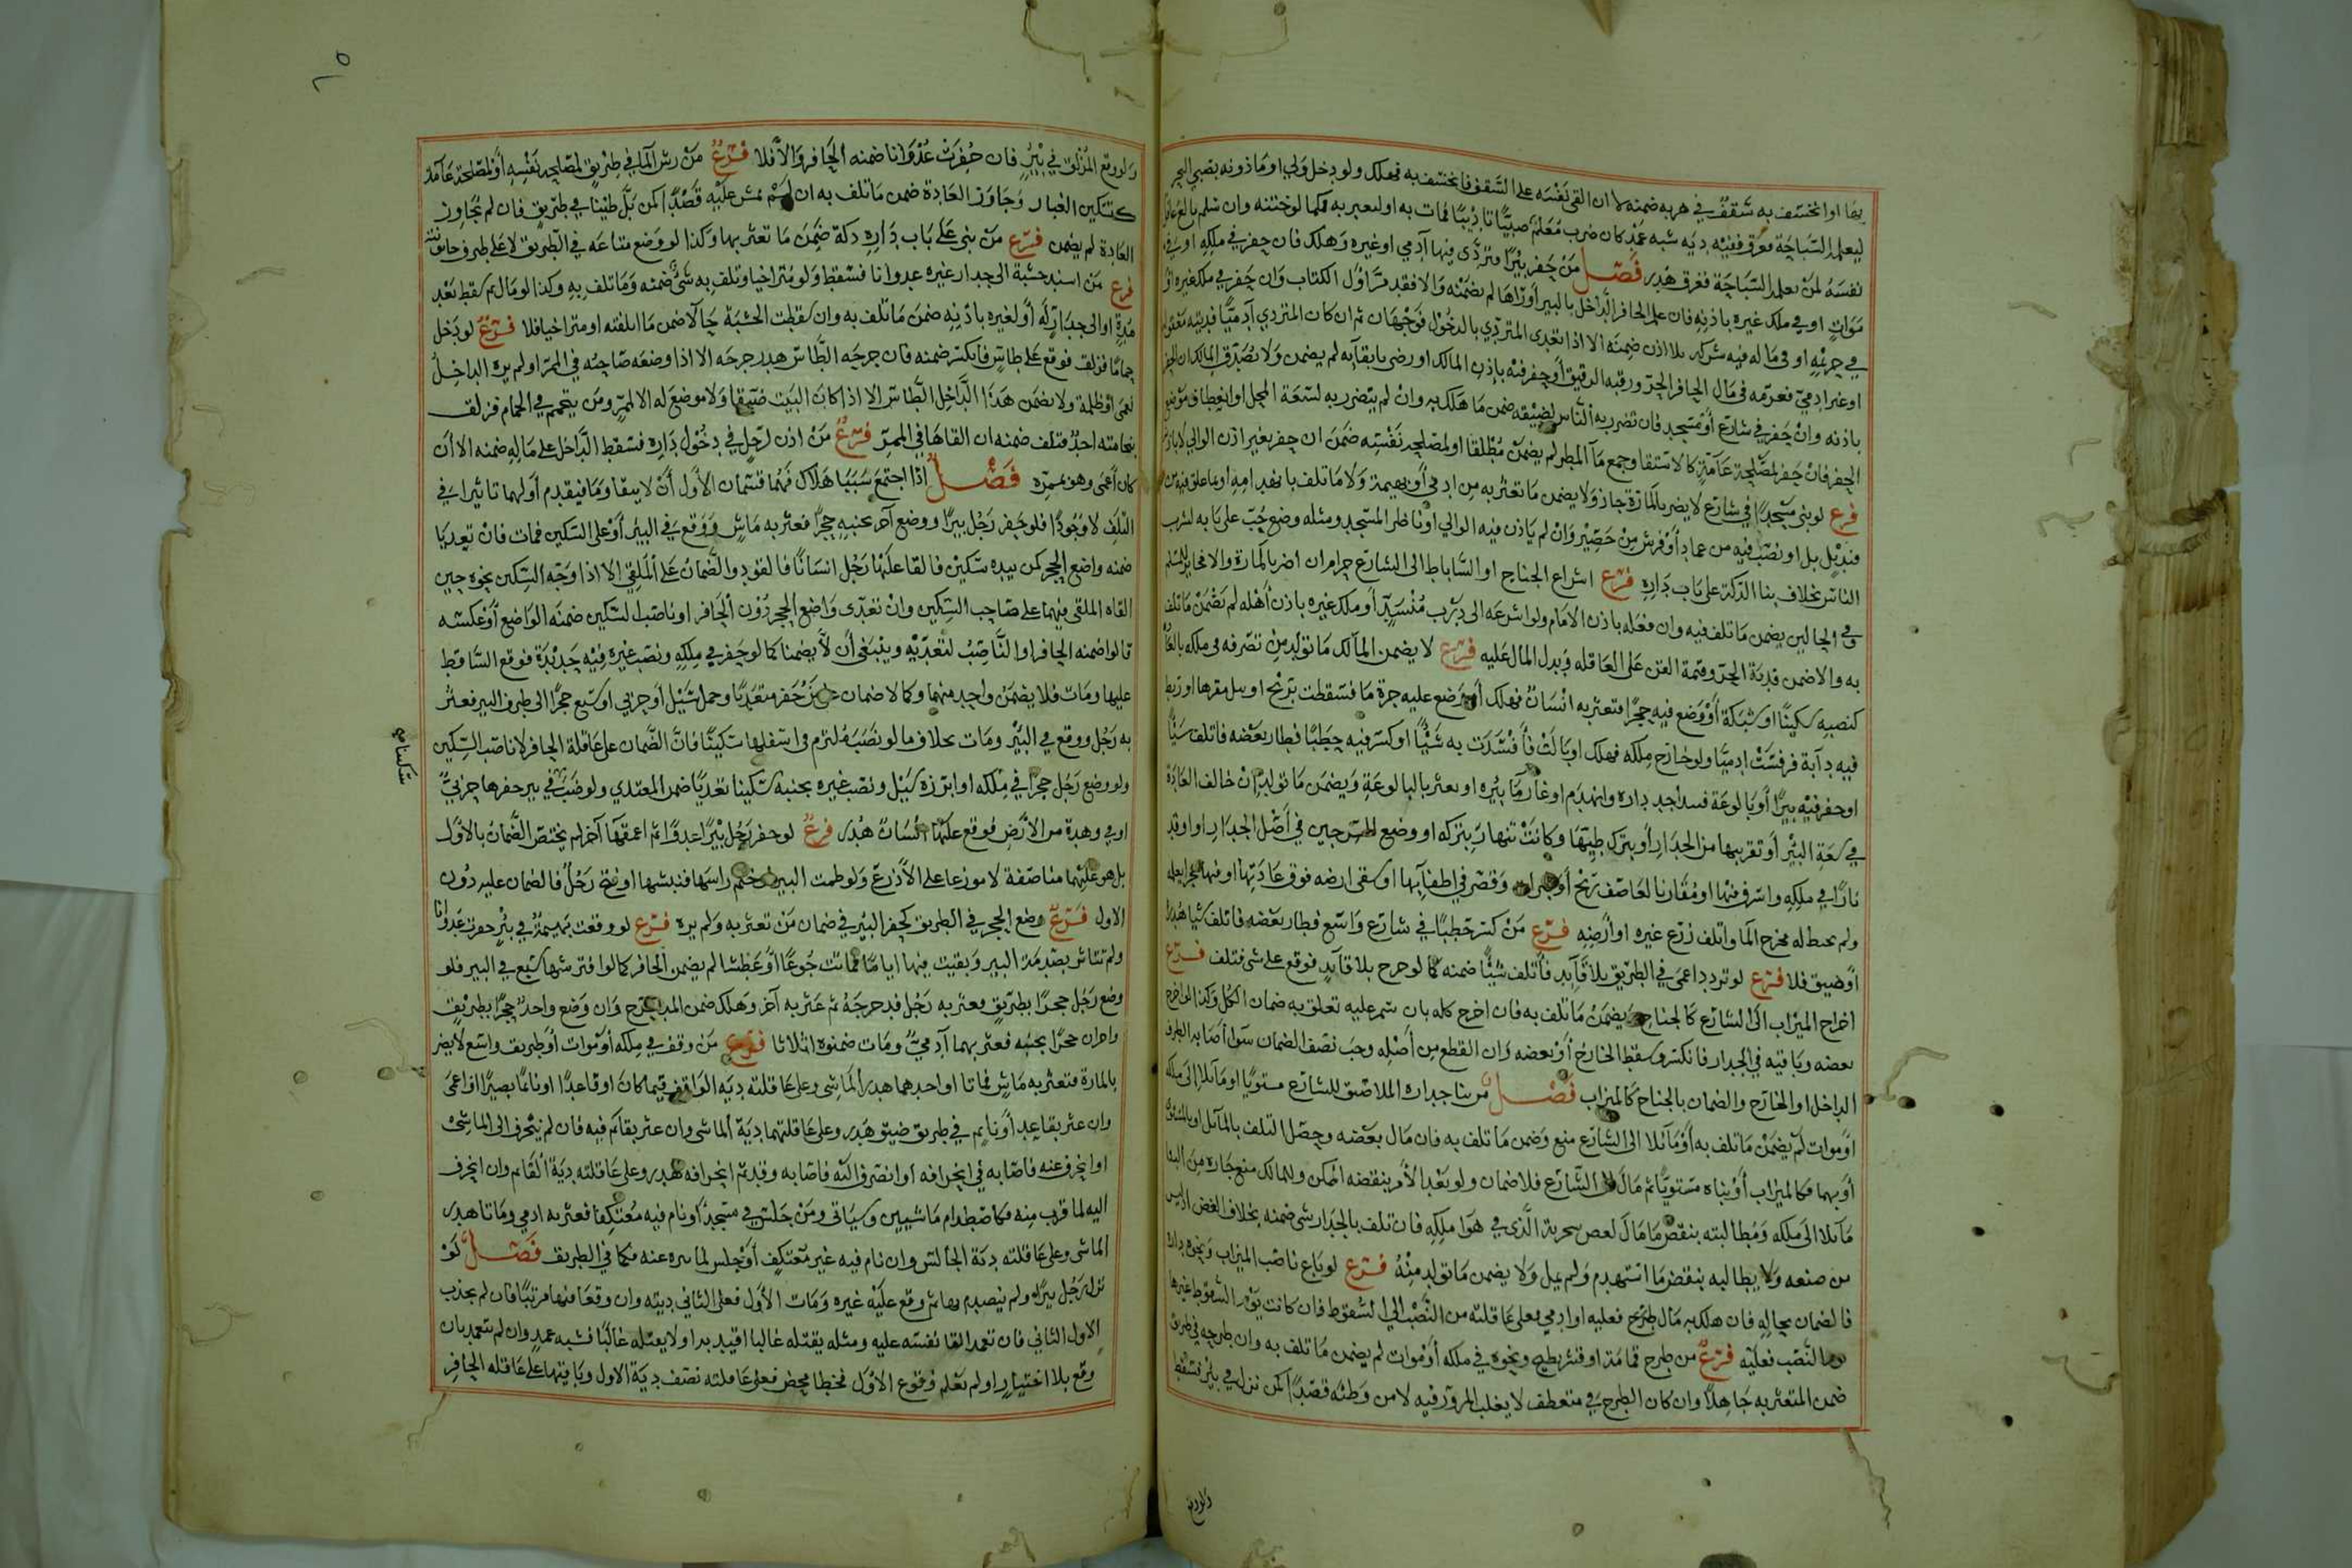 بها او انخسف به سقف في هربه ضمنه لا ان القى نفسه على السقف فانخسف به فهلك ولو دخل ولي او ماذونه بصبي البحر
ليعلمه السباحة فغرق ففيه دية شبه عمد كان ضرب معلم صبيا تاديبا فمات به او لعبر به فكما لو ختنه وان سلم بالغ عاقل
نفسه لمن يعلمه السباحة فغرق هدر فصل من حفر بئرا فتردى فيها آدمي او غيره وهلك فان حفر في ملكه او في
موات او في ملك غيره باذنه فان علم الحافر الداخل بالبير او راها لم يضمنه والا فقد مر اول الكتاب وان حفر في ملك غيره او
في حريمه او في ما له فيه شرك بلا اذن ضمنه الا اذا تعدى المتردي بالدخول فوجهان ثم ان كان المتردي آدميا فديته
او غير ادمي فغرمه في مال الحافر الحر ورقبة الرقيق او حفر فيه باذن المالك او رضي بابقائه لم يضمن ولا يصدق المالك ان الحفر
باذنه وان حفر في شارع او مسجد فان تضرر به الناس لضيقه ضمن ما هلك به وان لم يتضرر به لسعة المحل او انعطاف موضع
الحفر فان حفر لمصلحة عامة كالاستقا وجمع ماء المطر لم يضمن مطلقا او لمصلحة نفسه ضمن ان حفر بغير اذن الوالي لا باذنه
فرع لو بنى مسجدا في شارع لا يضر بالمارة جاز ولا يضمن ما تعثر به من ادمي او بهيمة ولا ما تلف بانهدامه او بما علق فيه من
قنديل بل او نصب فيه من عماد او فرش من حصير وان لم ياذن فيه الوالي او ناظر المسجد ومثله وضع حب على بابه لشرب
الناس بخلاف بنا الدكة على باب داره فرع اشراع الجناح او الساباط الى الشارع حرام ان اضر بالمارة والا فجائز للمسلم
وفي الحالين يضمن ما تلف فيه وان فعله باذن الامام ولو اشرعه الى درب منسد او ملك غيره باذن اهله لم يضمن ما تلف
به والا ضمن فدية الحر وقيمة القن على العاقلة وبدل المال عليه فرع لا يضمن المالك ما تولد من تصرفه في ملكه بالعادة
كنصبه سكينا او شبكة او وضع فيه حجرا فتعثر به انسان فهلك او وضع عليه جرة ما فسقطت بريح او ببلل مقرها او ربط
فيه دابة فرفست ادميا ولو خارج ملكه فهلك او بالت فافسدت به شيئا او كسر فيه حطبا فطار بعضه فاتلف شيئا
او حفر فيه بيرا او بالوعة فسد احد داره وانهدم او غار ما بئره او تعثر بالبالوعة ويضمن ما تولد ان خالف العادة
في سعة البئر او تقريبها من الجدار او بترك طيها وكانت تنهار بتركه او وضع السرجين في اصل الجدار او اوقد
نارا في ملكه واسرف فيها او مقارنا لعاصف ريح وقصر في اطفائها او سقى ارضه فوق عادتها او فيها
ولم يحتط له مخرج الما واتلف زرع غيره او ارضه فرع من كسر حطبا في شارع واسع فطار بعضه فاتلف شيا هدر
او ضيق فلا فرع لو تردد اعمى في الطريق بلا قائد فاتلف شيئا ضمنه كما لو خرج بلا قائد فوقع على شي فتلف فرع
اخراج الميزاب الى الشارع كالجناح ويضمن ما تلف به فان اخرج كله بان سمر عليه تعلق به ضمان الكل وكذا لو اخرج
بعضه وباقيه في الجدار فانكسر وسقط الخارج او بعضه وان انقطع من اصله وجب نصف الضمان سوا اصابه الطرف
الداخل او الخارج والضمان بالجناح كالميزاب فصل من بنا جداره الملاصق للشارع مستويا او مائلا الى ملكه
او موات لم يضمن ما تلف به او مائلا الى الشارع منع وضمن ما تلف به فان مال بعضه وحصل التلف بالمائل او بالمستوي
او بهما فكالميزاب او بناه مستويا ثم مال الى الشارع فلا ضمان ولو بعد الامر بنقضه امكن وللمالك منع جاره من البنا
مائلا الى ملكه ومطالبته بنقض ما مال الذي في هوا ملكه فان تلف بالجدار شي ضمنه بخلاف الغصن اذ ليس
من صنعه ولا يطالبه بنقض ما استهدم ولم يمل ولا يضمن ما تولد منه فرع لو باع ناصب الميزاب ونحوه داره
فالضمان بحاله فان هلك به مال طرح فعليه او ادمي فعلى عاقلته من النصب الى السقوط فان كانت يوم السقوط غيرها
يوم النصب فعليه فرع من طرح قمامة او قشر بطيخ ونحوه في ملكه او موات لم يضمن ما تلف به وان طرحه في طريق
ضمن المتعثر به جاهلا وان كان الطرح في منعطف لا يغلب المرور فيه لا من وطئه قصدا كمن نزل في بئر فسقط
ولو وقع
ولو وقع المزلق في بئر فان حفرت عدوانا ضمنه الحافر والا فلا فرع من رش الما في طريق لمصلحة نفسه او لمصلحة عامة
كتسكين الغبار وجاوز العادة ضمن ما تلف به ان لم يمش عليه قصدا كمن بل طينا في طريق فان لم يجاوز
العادة لم يضمن فرع من بنى على باب داره دكة ضمن ما تعثر بها وكذا لو وضع متاعه في الطريق لا على طرف حانوته
فرع من اسند خشبة الى جدار غيره عدوانا فسقط ولو متراخيا وتلف به شي ضمنه وما تلف به وكذا لو مال ثم سقط بعد
مدة او الى جدار له او لغيره باذنه ضمن ما تلف به وان سقطت الخشبة حالا ضمن ما اتلفته او متراخيا فلا فرع لو دخل
حماما فزلق فوقع على طاس فانكسر ضمنه فان جرحه الطاس هدر جرحه الا اذا وضعه صاحبه في الممر او لم يره الداخل
لعمى او ظلمة ولا يضمن هذا الداخل الطاس الا اذا كان البيت ضيقا ولا موضع له الا الممر ومن ينخم في الحمام فزلق
بنخامته احد فتلف ضمنه ان القاها في الممر فرع من اذن لرجل في دخول داره فسقط الداخل على ماله ضمنه الا ان
كان اعمى وهو بممره فصل اذا اجتمع سببا هلاك فهما قسمان الاول ان لا يبقا وما فيقدم اولهما تاثيرا في
التلف لا وجودا فلو حفر رجل بيرا ووضع آخر بجنبه حجرا فعثر به ماش ووقع في البير او على السكين فمات فان تعديا
ضمنه واضع الحجر كمن بيده سكين فالقا عليها رجل انسانا فالقود والضمان على الملقي الا اذا وجه السكين نحوه حين
القاه الملقى فيهما على صاحب السكين وان تعدى واضع الحجر دون الحافر او ناصب السكين ضمنه الواضع او عكسه
قالوا ضمنه الحافر او الناصب لتعديه وينبغي ان لا يضمنا كما لو حفر في ملكه ونصب غيره فيه حديدة فوقع الساقط
عليها ومات فلا يضمن واحد منهما وكما لا ضمان على من حفر متعديا وحمل سيل او حربي او سبع حجرا الى طرف البير فعثر
به رجل ووقع في البئر ومات بخلاف ما لو نصب هو لترم في اسفلها سكينا فان الضمان على عاقلة الحافر لا ناصب السكين
ولو وضع رجل حجرا في ملكه او ابرزه سيل ونصب غيره بجنبه سكينا تعديا ضمن المعتدي ولو ضب في بير حفرها حربي
او في وهدة من الارض فوقع عليها انسان هدر فرع لو حفر رجل بئرا عدوا ثم اعمقها آخر لم يختص الضمان بالاول
بل هو عليهما مناصفة لا موزعا على الاذرع ولو طمت البير او ختم راسها فنبشها او فتح رجل فالضمان عليه دون
الاول فرع وضع الحجر في الطريق كحفر البير في ضمان من تعثر به ولم يره فرع لو وقعت بهيمة في بئر حفرت عدوانا
ولم تتاثر بصدمة البير وبقيت فيها اياما فماتت جوعا او عطشا لم يضمن الحافر كما لو افترسها سبع في البير فلو
وضع رجل حجرا بطريق وتعثر به رجل فدحرجه ثم عثر به آخر وهلك ضمن المدحرج وان وضع واحد حجرا بطريق
واخران حجرا بجنبه فعثر بهما آدمي ومات ضمنوه اثلاثا فرع من وقف في ملكه او موات او طريق واسع لا يضر
بالمارة فتعثر به ماش فماتا او احدهما هدر الماشي وعلى عاقلته دية الواقف قيما كان او قاعدا او نائما بصيرا او اعمى
وان عثر بقاعد او نائم في طريق ضيق هدر وعلى عاقلتهما دية الماشي وان عثر بقائم فيه فان لم ينحرف الى الماشي
او انحرف عنه فاصابه في انحرافه او انصرف اليه فاصابه وقد تم انحرافه هدر وعلى عاقلته دية القائم وان انحرف
اليه لما قرب منه فكاصطدام ماشيين وسياتي ومن جلس في مسجد او نام فيه معتكفا فعثر به ادمي وماتا هدر
الماشي وعلى عاقلته دية الجالس وان نام فيه غير معتكف او جلس لما ينزه عنه فكما في الطريق فصل لو
نزل رجل بيرا ولم يصدم وقع عليه غيره ومات الاول فعلى الثاني ديته وان وقعا فيها مرتبا فان لم يجذب
الاول الثاني فان تعمد القا نفسه عليه ومثله يقتله غالبا اقيد به او لا يقتله غالبا فشبه عمد وان لم يتعمد بان
وقع بلا اختيار او لم يعلم وقوع الاول فخطا محض فعلى عاقلته نصف دية الاول وباقيها على عاقلة الحافر